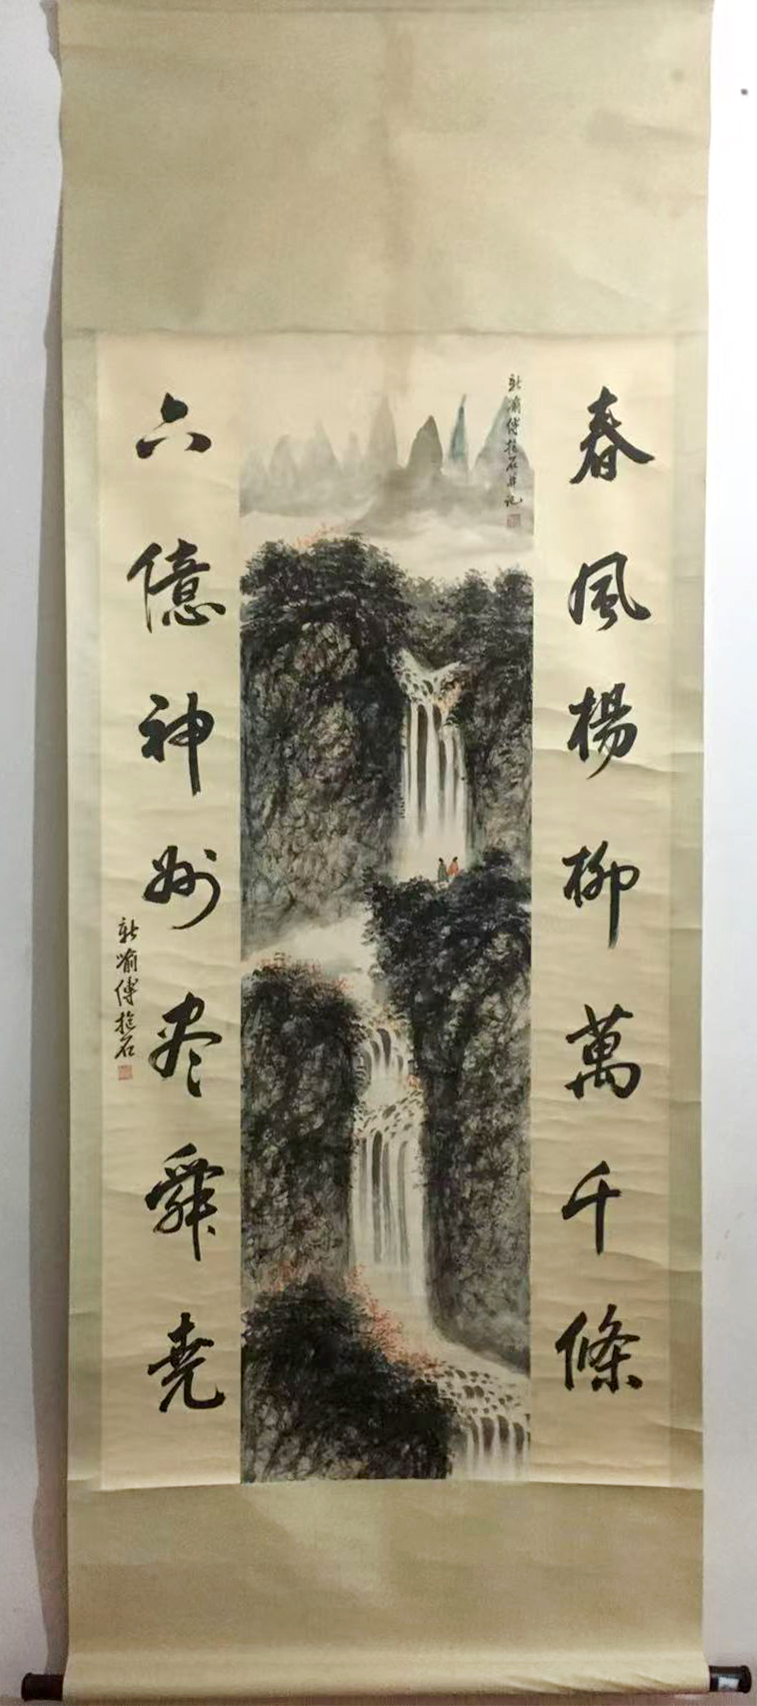 春風楊柳萬千條
新喻傅抱石並記
六億神州尽舜尭
新喻傅抱石